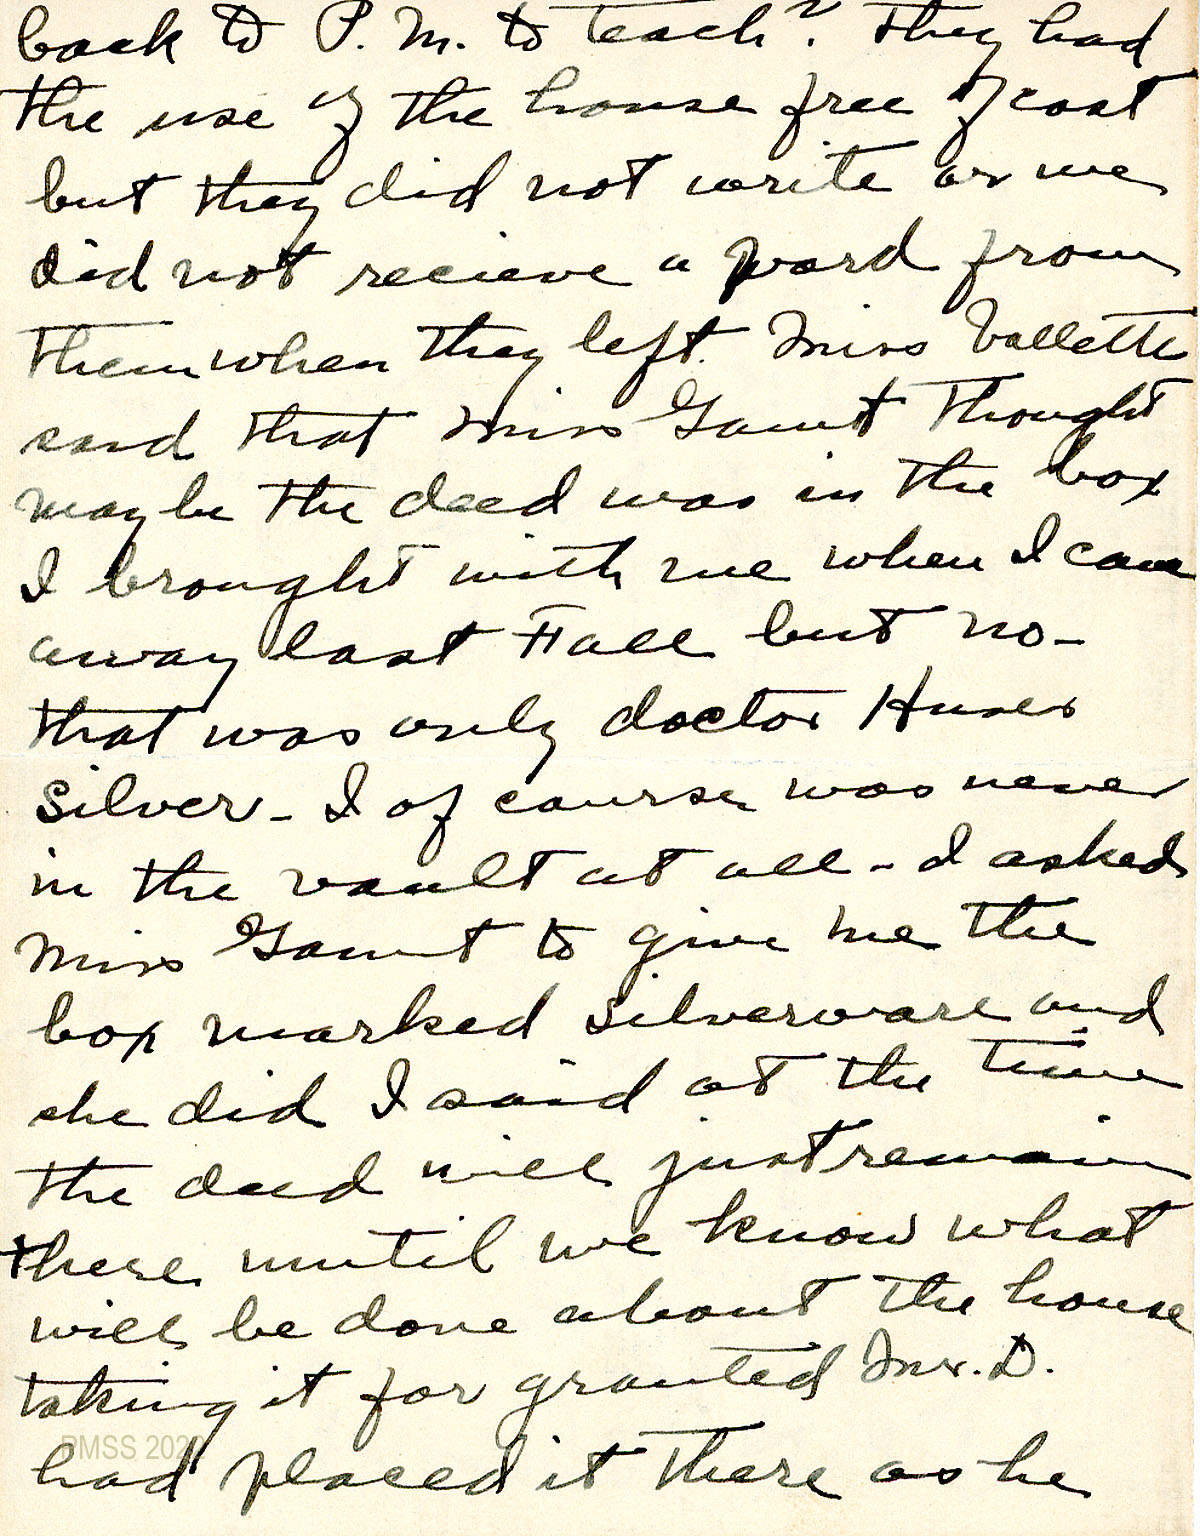 back to P. M. to teach? They had
the use of the house free of cost
but they did not write or we
did not recieve a word from
them when they left. Miss Vallette
said that Miss Gaunt thought
maybe the deed was in the box
I brought with me when I came
away last Fall but no-
that was only doctor Huses
Silver - I of course was never
in the vault at all - I asked
Miss Gaunt to give me the
box marked silverware and
she did I said at the time
the deed will just remain
there until we know what
will be done about the house
taking it for granted Mr. D.
PMSS 2020
had placed it there as he